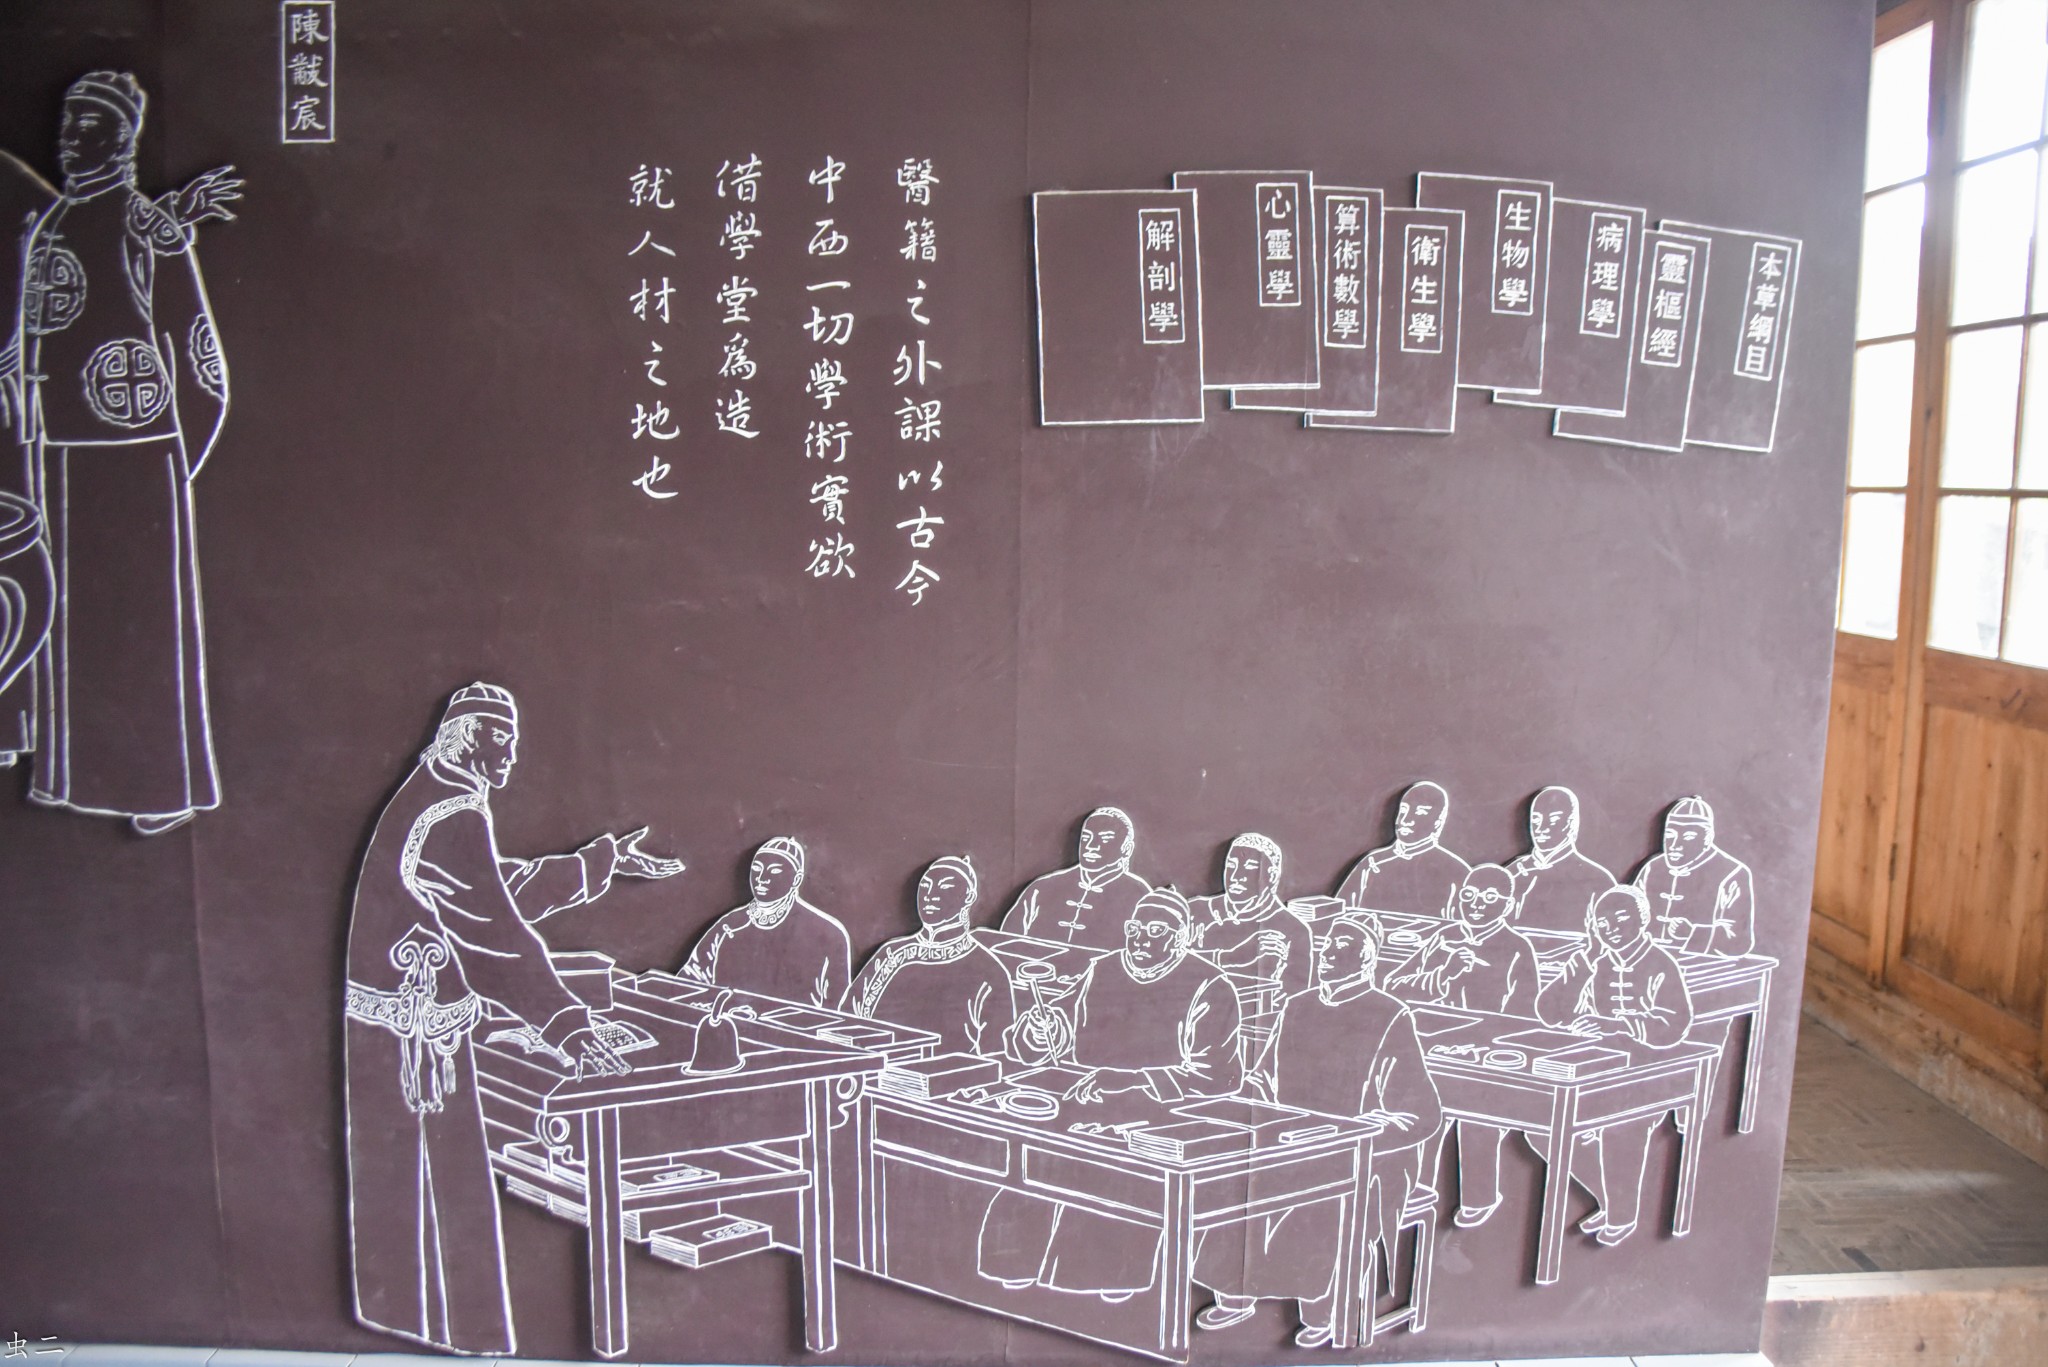 本草綱目
靈樞經
病理學
生物學
衛生學
算術數學
心靈學
解剖學
醫籍之外課以古今
中西一切學術實欲
借學堂爲造
就人材之地也
陳黻宸
虫二